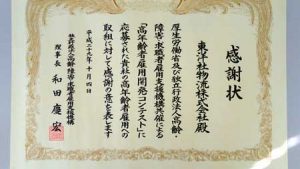 感謝状
東洋社物流株式会社殿
厚生労働省及び独立行政法人高齢・
障害・求職者雇用支援機構共催による
「高年齢者雇用開発コンテスト」に
応募された貴社の高年齢者雇用への
取組に対して感謝の意を表します
平成二十九年十月四日
独立行政法人高齢・障害・求職者雇用支援機構
理事長 和田慶宏